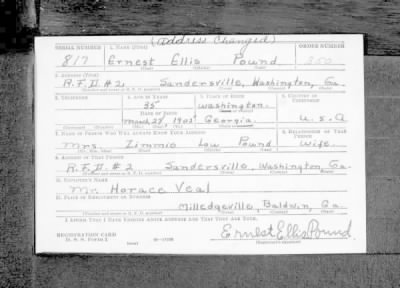 (Address Changed)
SERIAL NUMBER 1. NAME (Print) ORDER NUMBER
817 Ernest Ellis Pound 850
(First) (Middle) (Last)
2. ADDRESS (Print)
R.F.D.#2 Sandersville, Washington, Ga.
(Number and street or R. F. D. number) (Town) (County) (State)
3. TELEPHONE 4. AGE IN YEARS 5. PLACE OF BIRTH 6. COUNTRY OF CITIZENSHIP
35 Washington
DATE OF BIRTH (Town or county)
March 28, 1905 Georgia. U.S.A
(Exchange) (No.) (Mo.) (Day) (Yr.) (State or country)
7. NAME OF PERSON WHO WILL ALWAYS KNOW YOUR ADDRESS 8. RELATIONSHIP OF THAT PERSON
Mrs. Zimmie Lou Pound Wife.
(Mr., Mrs., Miss) (First) (Middle) (Last)
9. ADDRESS OF THAT PERSON
R.F.D.#2 Sandersville, Washington Ga.
(Number and street or R. F. D. number) (Town) (County) (State)
10. EMPLOYER'S NAME
Mr. Horace Veal
11. PLACE OF EMPLOYMENT OR BUSINESS
Milledgeville, Baldwin, Ga.
(Number and street or R. F. D. number) (Town) (County) (State)
I AFFIRM THAT I HAVE VERIFIED ABOVE ANSWERS AND THAT THEY ARE TRUE.
REGISTRATION CARD
D. S. S. Form 1 (over) Ernest Ellis Pound
(Registrant's signature)